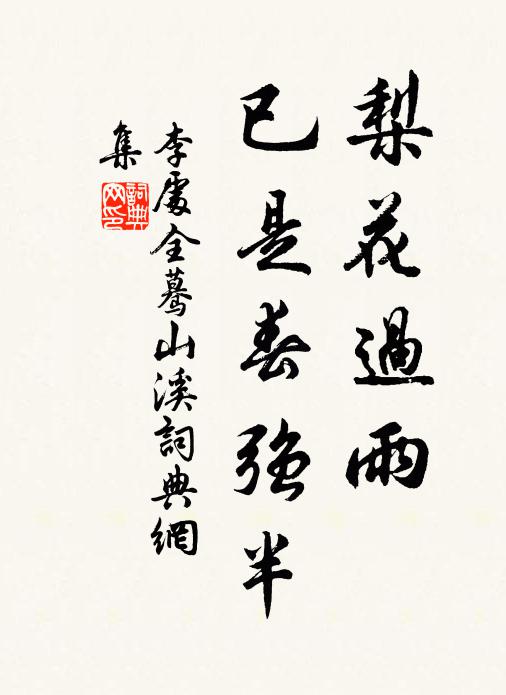 梨花過雨
已是春強半
李處全驀山溪詞典網
集
詞典
网印